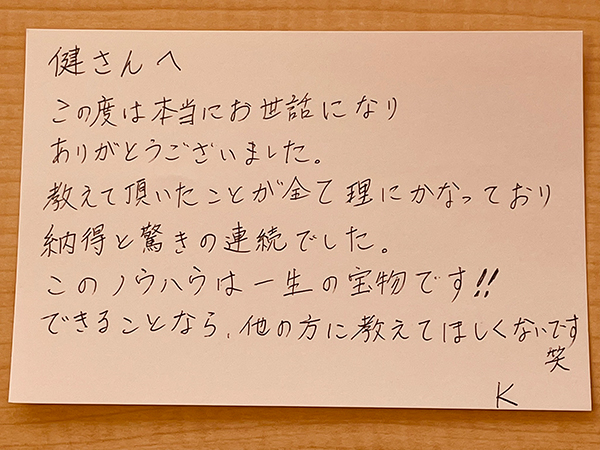 健さんへ
この度は本当にお世話になり
ありがとうございました。
教えて頂いたことが全て理にかなっており
納得と驚きの連続でした。
このノウハウは一生の宝物です!!
できることなら、他の方に教えてほしくないです
笑
K